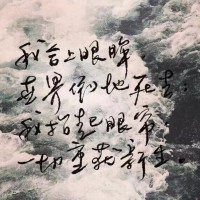 我合上眼眸
世界倒地死去;
我抬起眼帘
一切重获新生。